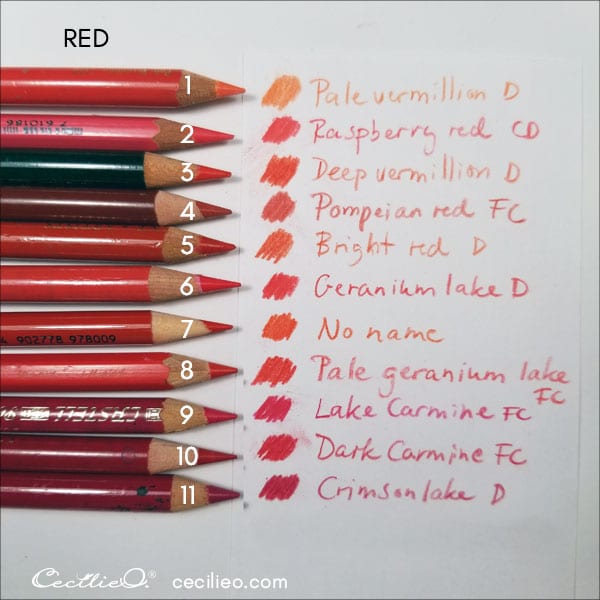 RED
1 Pale vermillion D
2 Raspberry red CD
3 Deep vermillion D
4 Pompeian red FC
5 Bright red D
6 Geranium lake D
4 902778 978009
7 No name
8 Pale geranium lake
FC
CASTELL
9 Lake Carmine FC
10 Dark Carmine FC
11 Crimson lake D
CecilieO.® cecilieo.com